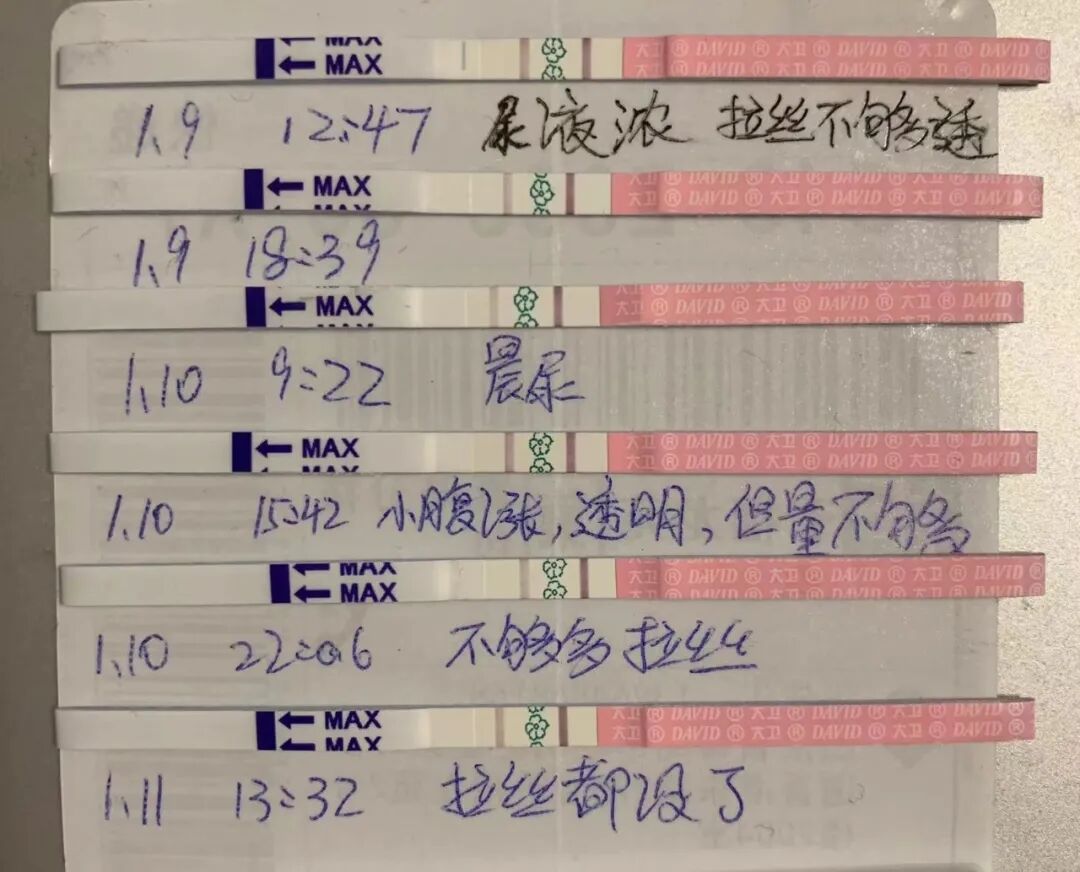 MAX
MAX 大卫 ® DAVID ® 大卫 ® DAVID ® 大卫 ® DAVID ®
1.9 12:47 尿液浓 拉丝不够透
MAX ® DAVID ® 大卫 ® DAVID ® 大卫 ® DAVID ®
1.9 18:39
MAX 大卫 ® DAVID ® 大卫 ® DAVID ® 大卫 ® DAVID ®
1.10 9:22 晨尿
MAX 大卫 ® DAVID ® 大卫 ® DAVID ® 大卫 ® DAVID
MAX
1.10 15:42 小腹涨,透明,但量不够多
MAX
MAX ® DAVID ® 大卫 ® DAVID ® 大卫 ® DAVID ®
1.10 22:06 不够多 拉丝
MAX ® DAVID ® 大卫 ® DAVID ® 大卫 ® DAVID ®
MAX
1.11 13:32 拉丝都没了